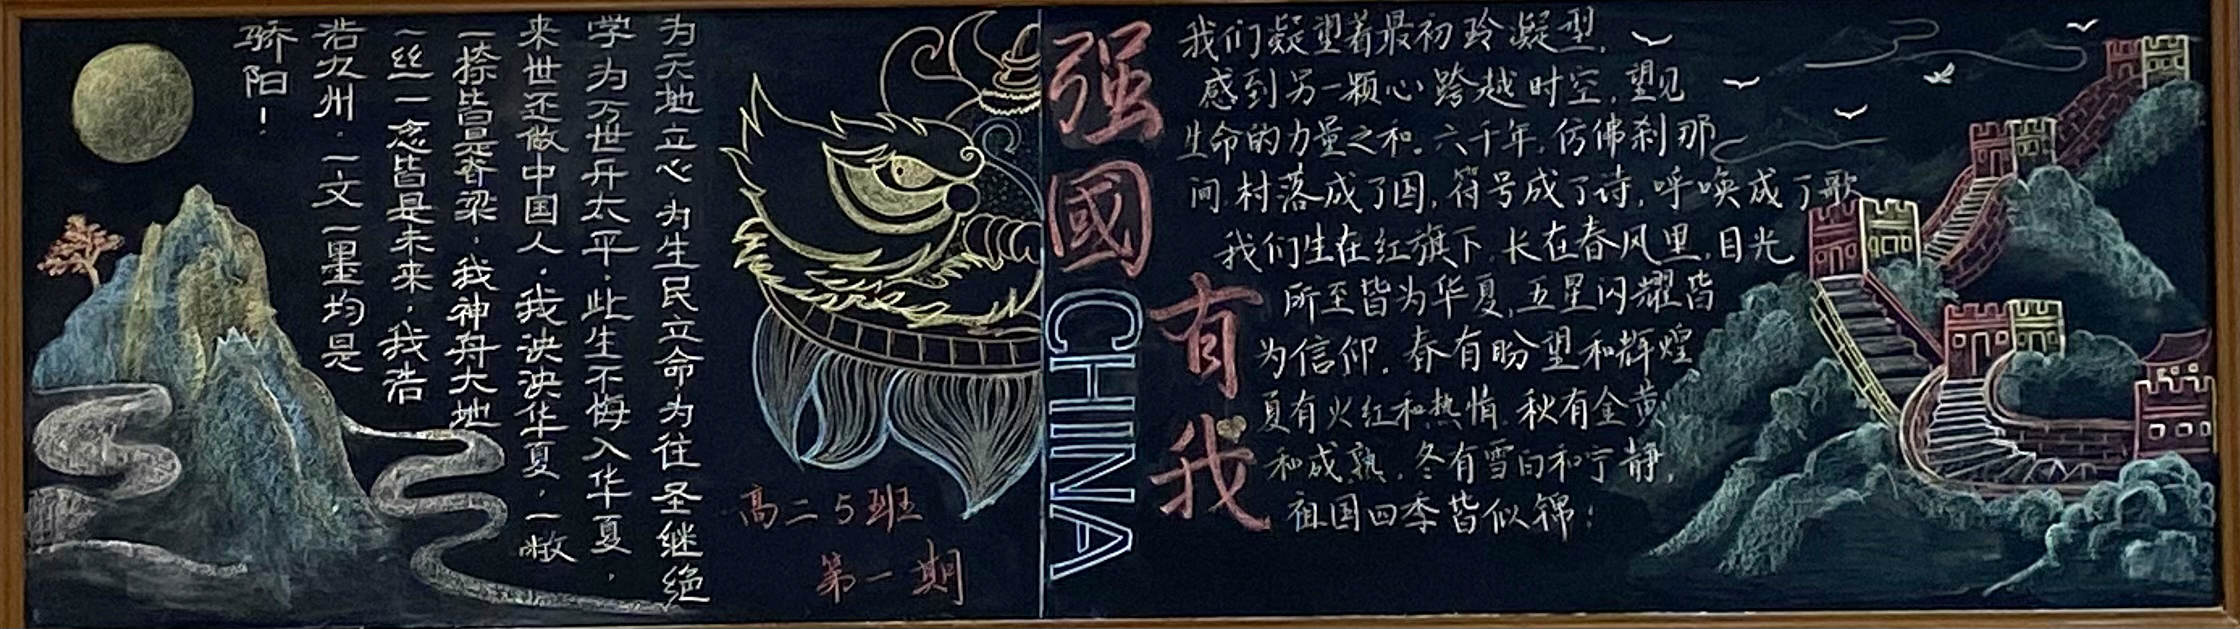 为天地立心.为生民立命为往圣继绝
学为万世开太平.此生不悔入华夏.
来世还做中国人.我泱泱华夏.一撇
一捺皆是脊梁.我神舟大地
一丝一念皆是未来.我浩
浩九州.一文一墨均是
骄阳!
高二5班
第一期
强國有我
CHINA
我们凝望着最初玲凝型,
感到另一颗心跨越时空,望见
生命的力量之和。六千年,仿佛刹那
间,村落成了国,符号成了诗,呼唤成了歌
我们生在红旗下,长在春风里,目光
所至皆为华夏,五星闪耀皆
为信仰.春有盼望和辉煌
夏有火红和热情.秋有金黄
和成熟.冬有雪白和宁静,
祖国四季皆似锦!